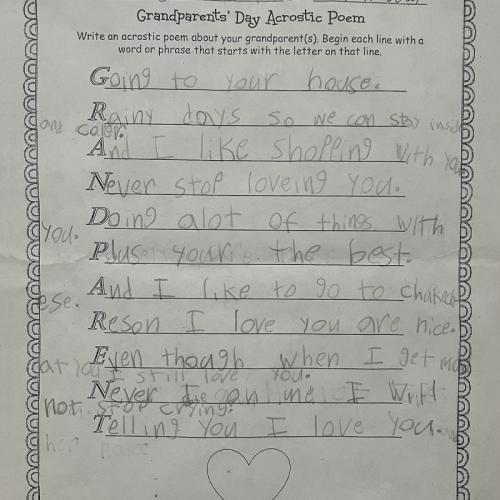 Grandparents' Day Acrostic Poem
Write an acrostic poem about your grandparent(s). Begin each line with a
word or phrase that starts with the letter on that line.
Going to your house.
Rainy days so we can stay inside
and color.
And I like shopping with you
Never stop loveing you.
Doing alot of things with
you.
Plus your the best.
And I like to go to chakee
ese.
Reson I love you are nice.
Even though when I get mad
at you I still love you.
Never I on line I Writ
not stop crying.
Telling you I love you.